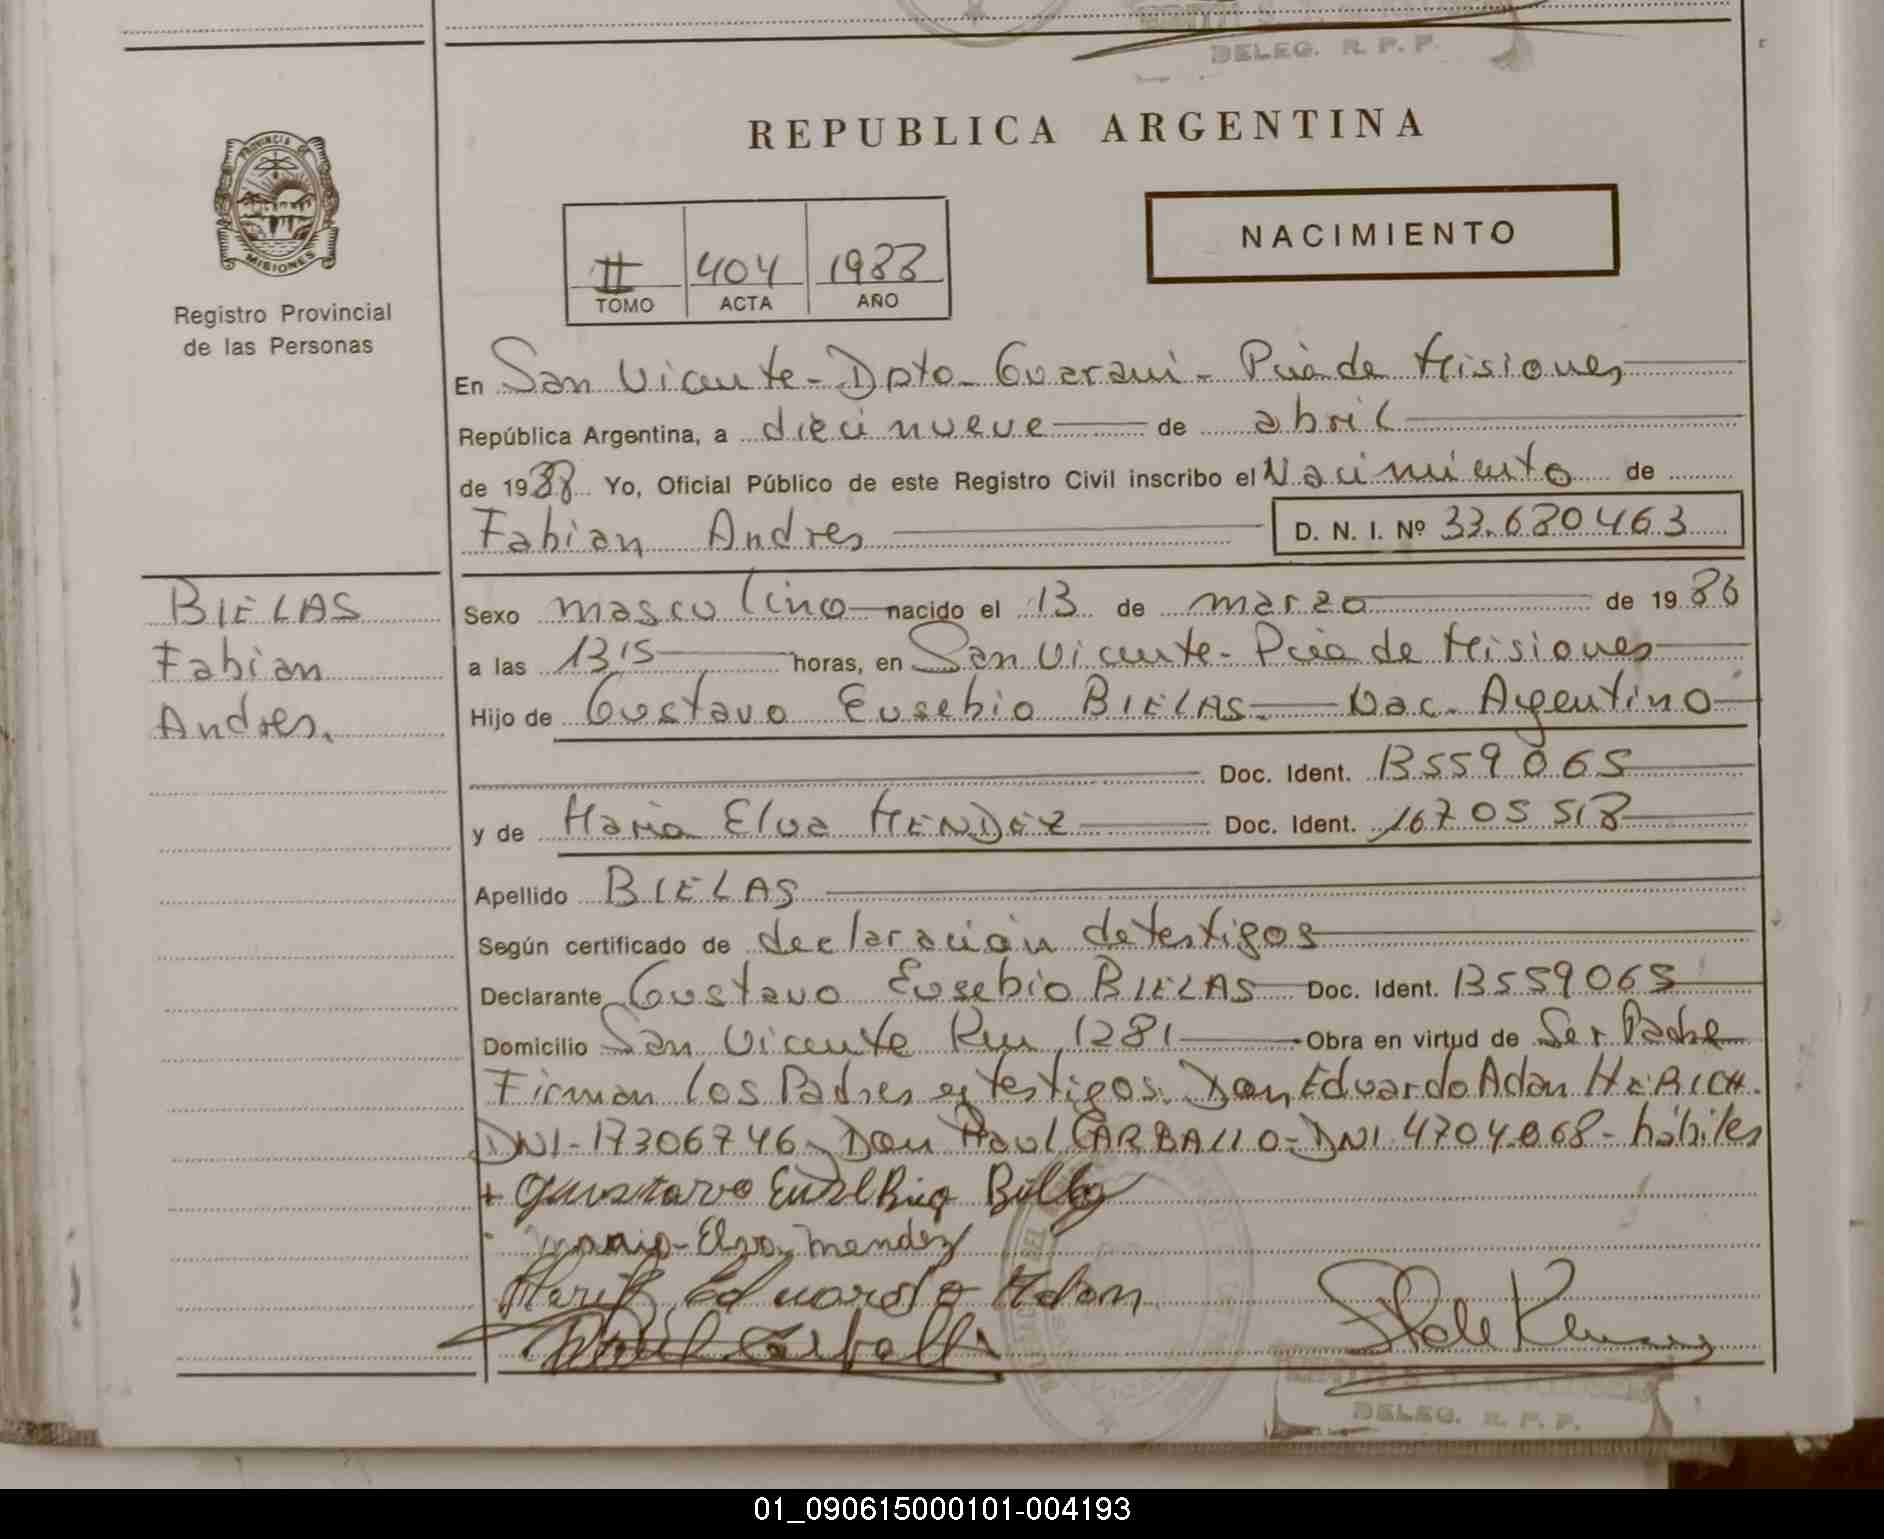 DELEG. R. P. P.
REPUBLICA ARGENTINA
PROVINCIA DE
MISIONES
Registro Provincial
de las Personas
NACIMIENTO
II 404 1988
TOMO ACTA AÑO
En San Vicente - Dpto - Guarani - Pcia de Misiones
República Argentina, a dieci nueve de abril
de 1988 Yo, Oficial Público de este Registro Civil inscribo el Nacimiento de
Fabian Andres D. N. I. Nº 33.680463
BIELAS
Fabian
Andres.
Sexo masculino nacido el 13 de marzo de 1986
a las 1315 horas, en San Vicente - Pcia de Misiones
Hijo de Gustavo Eusebio BIELAS - Nac. Argentino
Doc. Ident. 13559065
y de Maria Elva MENDEZ Doc. Ident. 16705518
Apellido BIELAS
Según certificado de declaración de testigos
Declarante Gustavo Eusebio BIELAS Doc. Ident. 13559065
Domicilio San Vicente Km 1281 Obra en virtud de Ser Padre
Firman los Padres y testigos. Don Eduardo Adan HERICH.
DNI - 17306746 - Don Raul CARBALLO - DNI 4704068 - hábiles
+ Eusebio
Elva mendez
Eduardo Adan
Raul Carballo
DELEG. R. P. P.
01_090615000101-004193